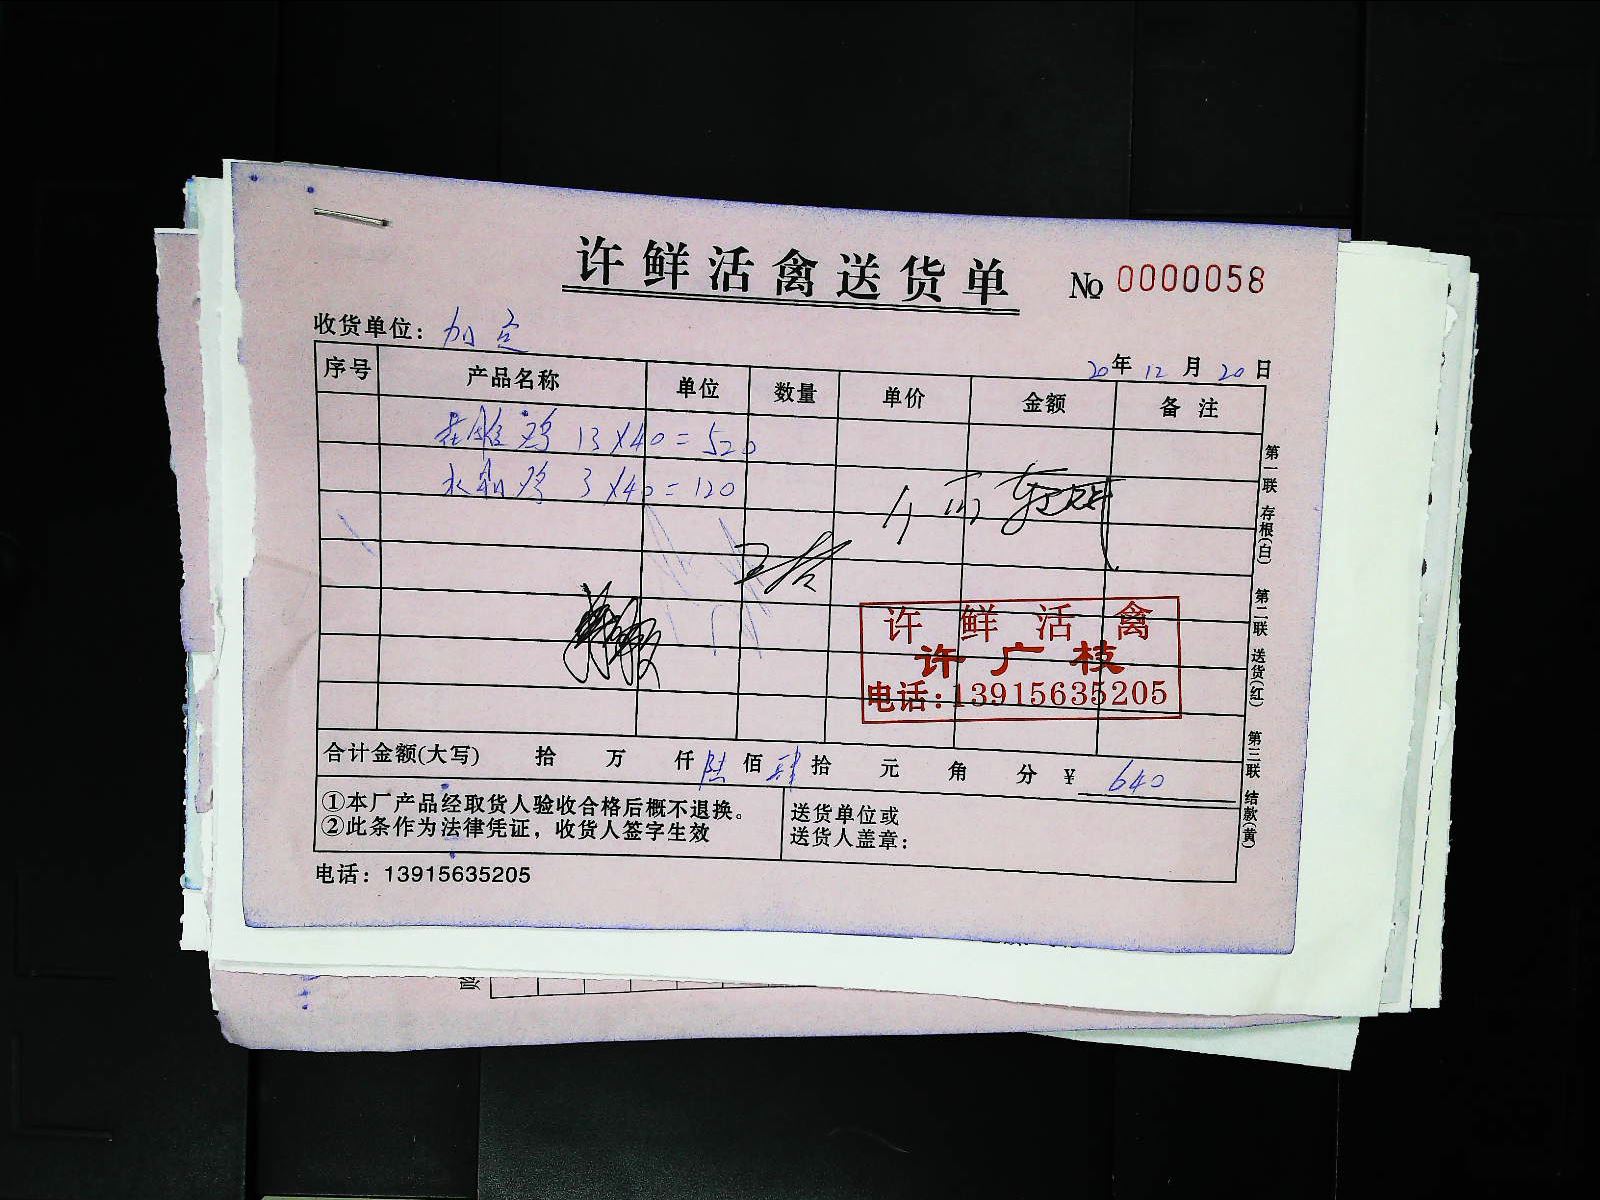 许鲜活禽送货单 № 0000058
收货单位： 加定
20年 12月 20日
序号 产品名称 单位 数量 单价 金额 备注
鸡 13×40=520
鸡 3×40=120
许鲜活禽
许广枝
电话：13915635205
合计金额(大写) 拾 万 仟 陆佰 肆拾 元 角 分 ¥ 640
①本厂产品经取货人验收合格后概不退换。
②此条作为法律凭证，收货人签字生效
送货单位或
送货人盖章：
电话：13915635205
第一联 存根(白) 第二联 送货(红) 第三联 结款(黄)